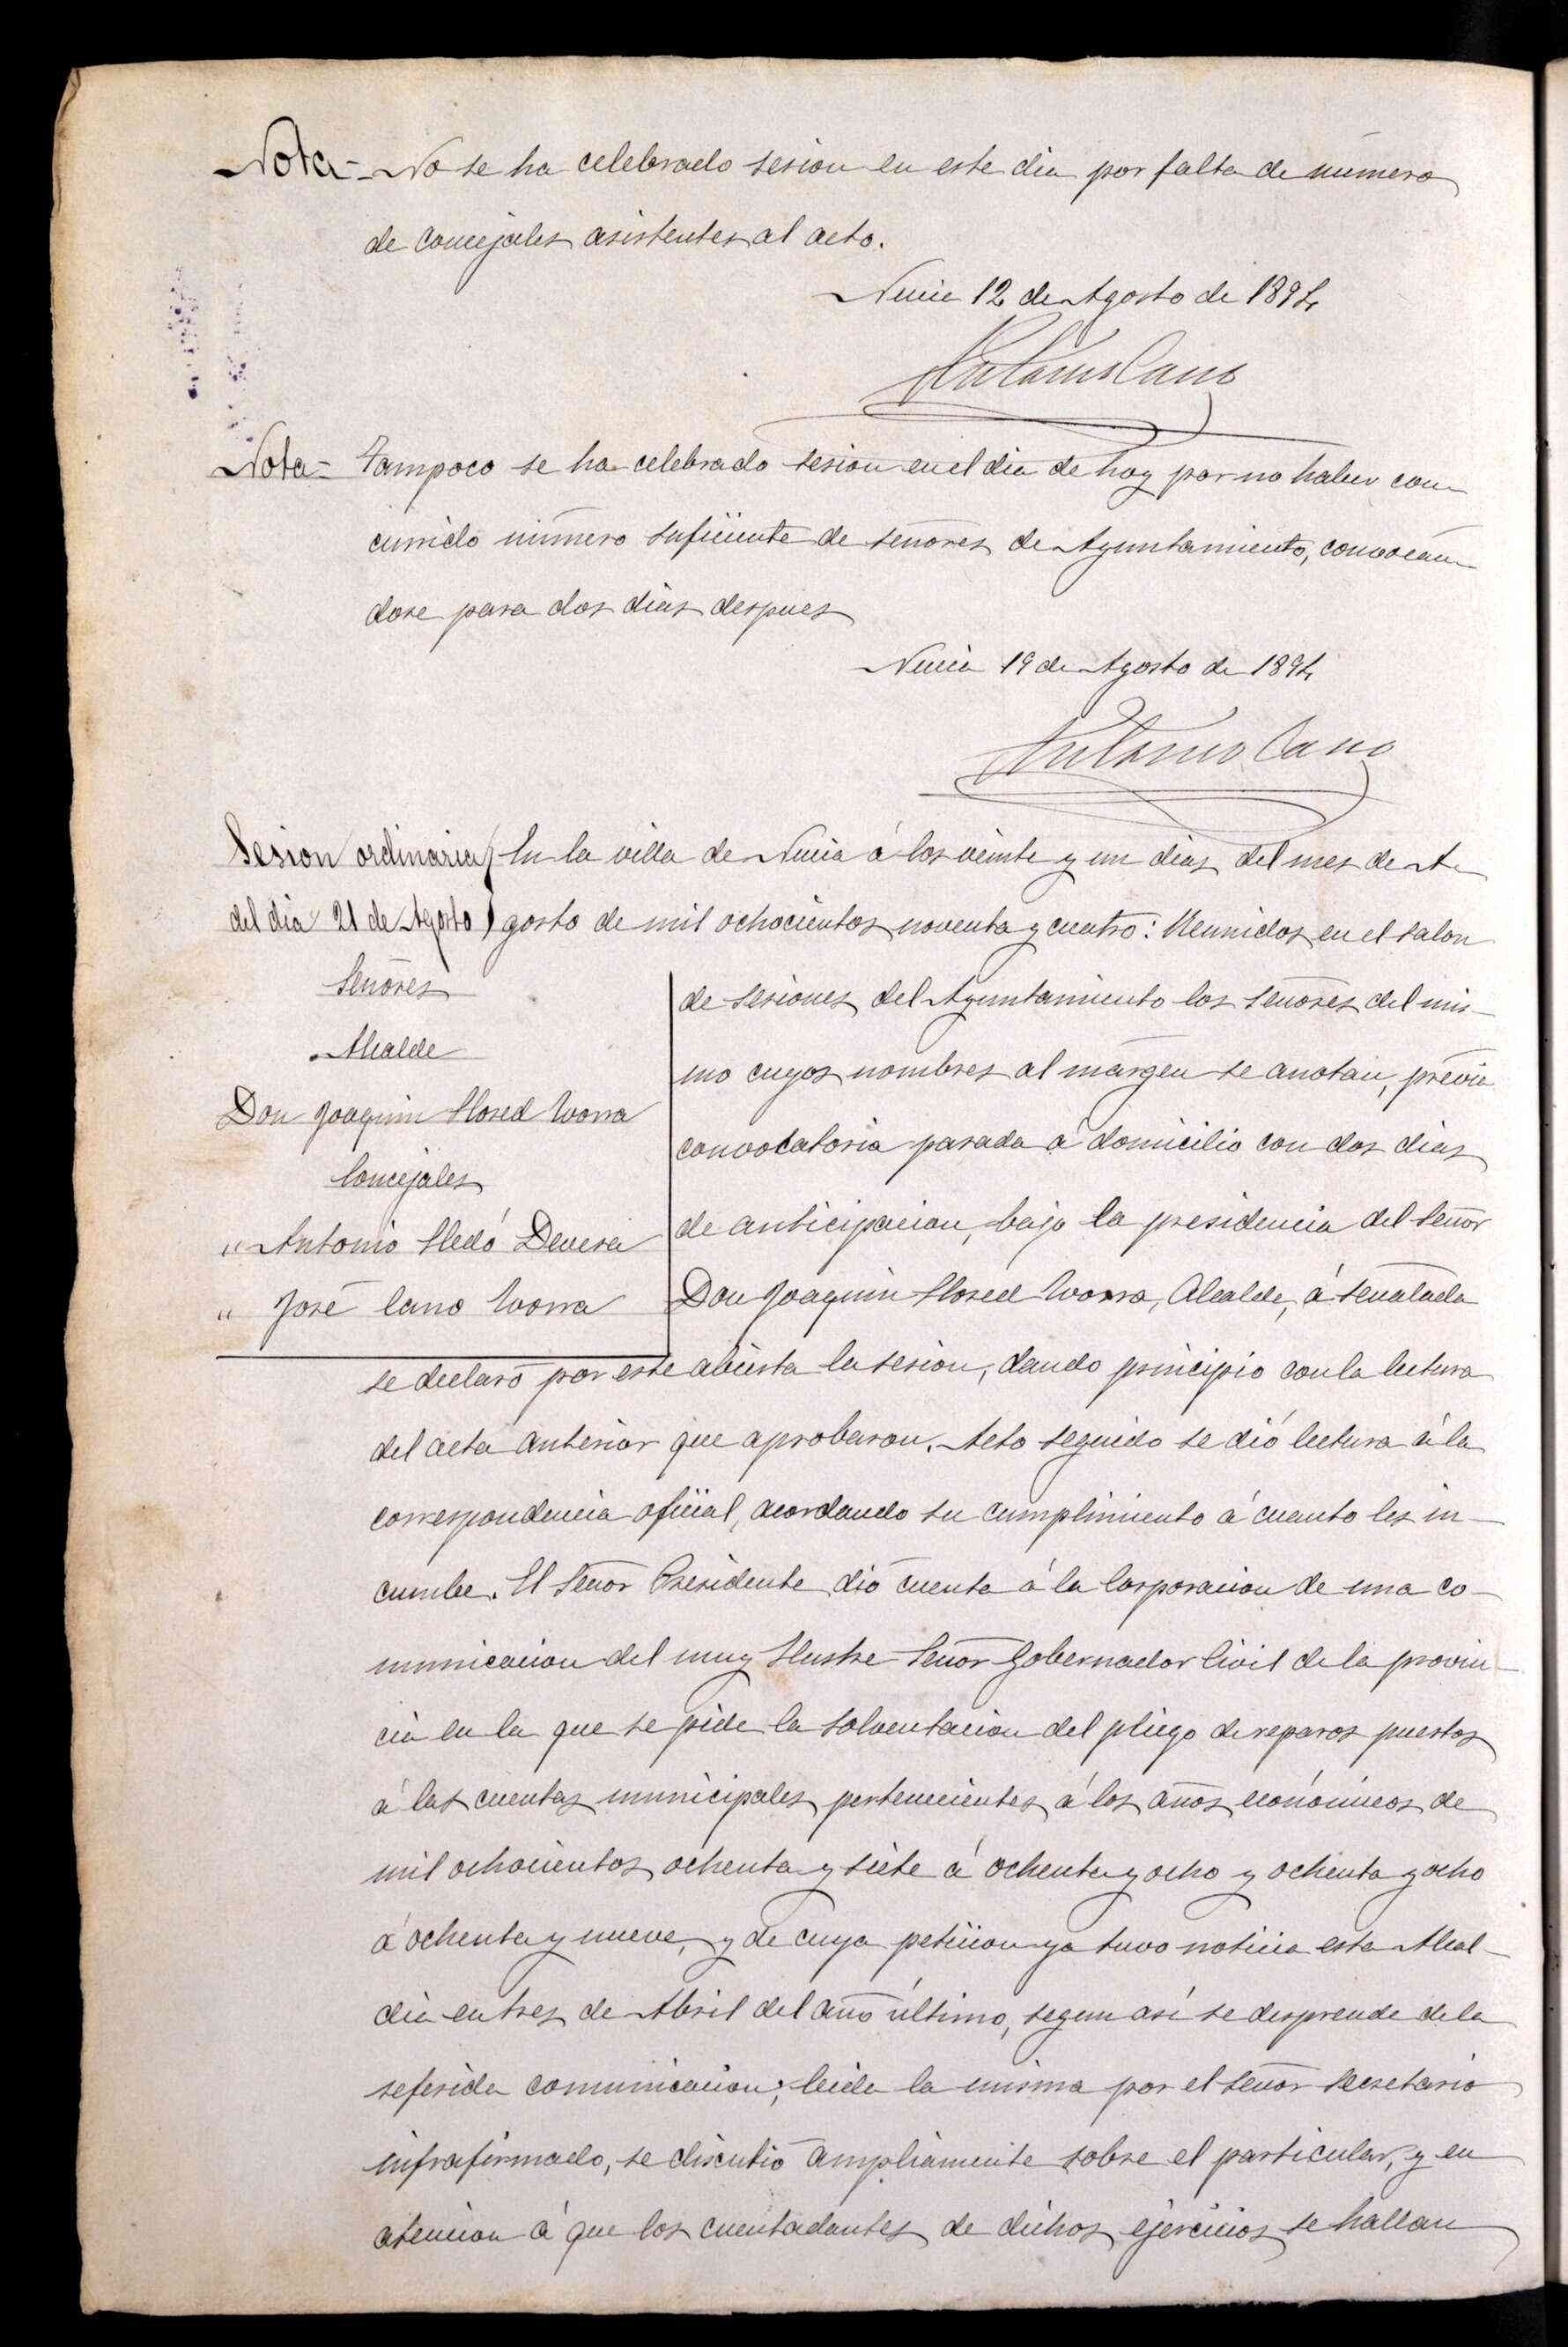 Nota- No se ha celebrado sesion en este dia por falta de número
de concejales asistentes al acto.
Nucia 12 de Agosto de 1894
Antonio Cano
Nota- Tampoco se ha celebrado sesion en el dia de hoy por no haber con-
currido número suficiente de señores de Ayuntamiento, convocán-
dose para dos dias despues
Nucia 19 de Agosto de 1894
Antonio Cano
Sesion ordinaria
del dia 21 de Agosto
Señores
Alcalde
Don Joaquin Llored Lloria
Concejales
" Antonio Lledó Devesa
" José Cano Lloria
En la villa de Nucia á los veinte y un dias del mes de A-
gosto de mil ochocientos noventa y cuatro: Reunidos en el salon
de sesiones del Ayuntamiento los señores del mis-
mo cuyos nombres al márgen se anotan, prévia
convocatoria pasada á domicilio con dos dias
de anticipacion, bajo la presidencia del Señor
Don Joaquin Llored Alcalde, á señalada
se declaró por este abierta la sesion, dando principio con la lectura
del acta anterior que aprobaron. Acto seguido se dió lectura á la
correspondencia oficial, acordando su cumplimiento á cuanto les in-
cumbe. El Señor Presidente dió cuenta á la Corporacion de una co-
municacion del muy Ilustre Señor Gobernador Civil de la provin-
cia en la que se pide la solventacion del pliego de reparos puestos
á las cuentas municipales pertenecientes á los años económicos de
mil ochocientos ochenta y siete á ochenta y ocho y ochenta y ocho
á ochenta y nueve, y de cuya peticion ya tuvo noticia esta Alcal-
dia en tres de Abril del año último, segun así se desprende de la
referida comunicacion; leida la misma por el señor Secretario
infrafirmado, se discutió ampliamente sobre el particular, y en
atencion á que los cuentadantes de dichos ejercicios se hallan